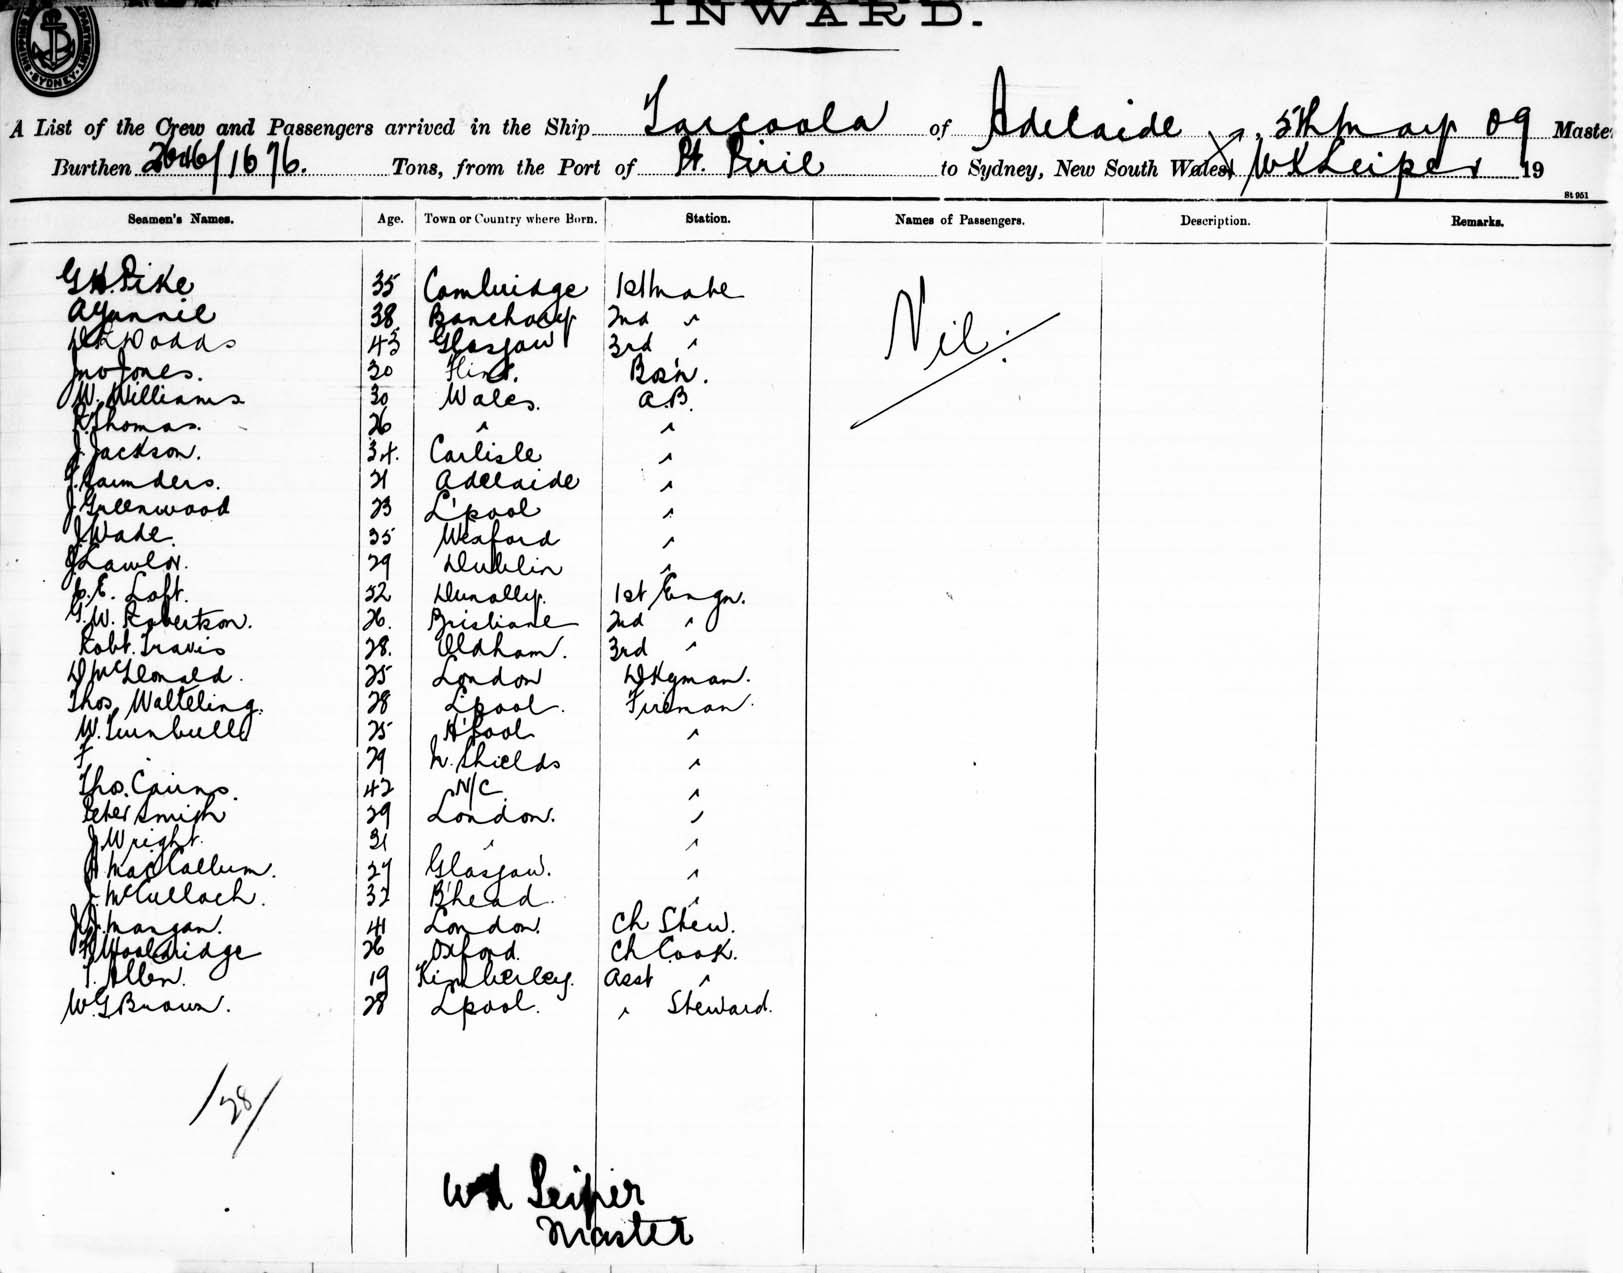 INWARD.
SHIPPING DEPARTMENT SYDNEY
A List of the Crew and Passengers arrived in the Ship Tarcoola of Adelaide 5th May 09 Maste
Burthen 2646/1676. Tons, from the Port of Pt. Pirie to Sydney, New South Wales, W Leiper 19
St 951
Seamen's Names. Age. Town or Country where Born. Station. Names of Passengers. Description. Remarks.
G H. Pike 35 Cambridge 1st mate
38 Banchory 2nd "
Dodds 43 Glasgow 3rd "
Nil.
Jno Jones. 30 Flint. Bos'n.
W. Williams 30 Wales. A.B.
R. Thomas. 26 " "
J. Jackson. 34. Carlisle "
Saunders. 21 Adelaide "
J. Greenwood 23 L'pool "
J. Wade. 35 Wexford "
J. Lawlor. 29 Dublin "
C. E. Loft. 32 Dunolly. 1st Engr.
G. W. Robertson. 26. Brisbane 2nd "
Robt. Travis 28. Oldham. 3rd "
D McDonald. 25 London Dkyman.
Thos. Walteling. 28 L'pool. Fireman.
W. Turnbull 25 H'pool "
F 29 N. Shields "
Tho. Cairns. 42 N/C. "
Peter Smith 29 London. "
J Wright. 31 " "
MacCallum. 27 Glasgow. "
J. McCulloch. 32 B'head. "
J. J. Mangan. 41 London. Ch Stew.
Wooldridge 26 Oxford. Ch Cook.
T. Allen. 19 Kimberley. Asst "
W. G Brown. 28 L'pool. " Steward.
/28/
W Leiper
Master